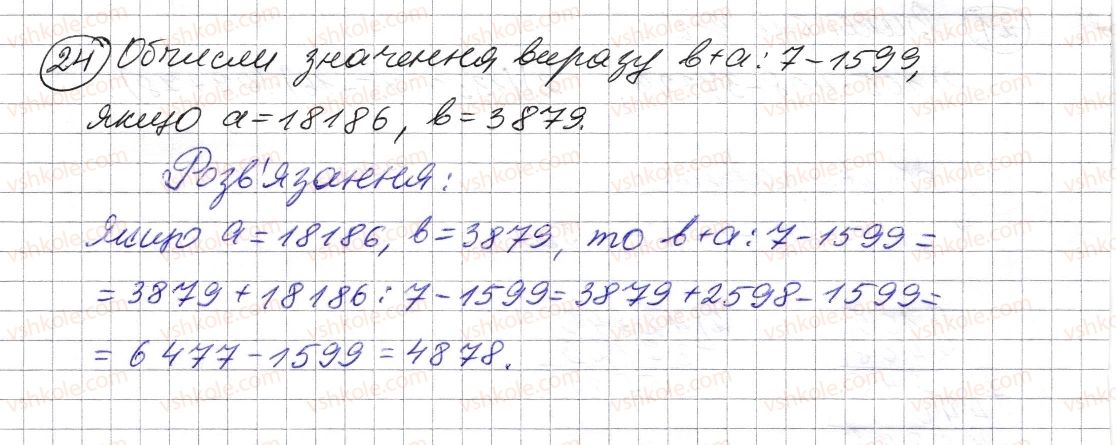 24 Обчисли значення виразу в+а:7-1599,
якщо а=18186, в=3879.
Розв'язання:
Якщо а=18186, в=3879, то в+а:7-1599=
=3879+18186:7-1599=3879+2598-1599=
=6477-1599=4878.